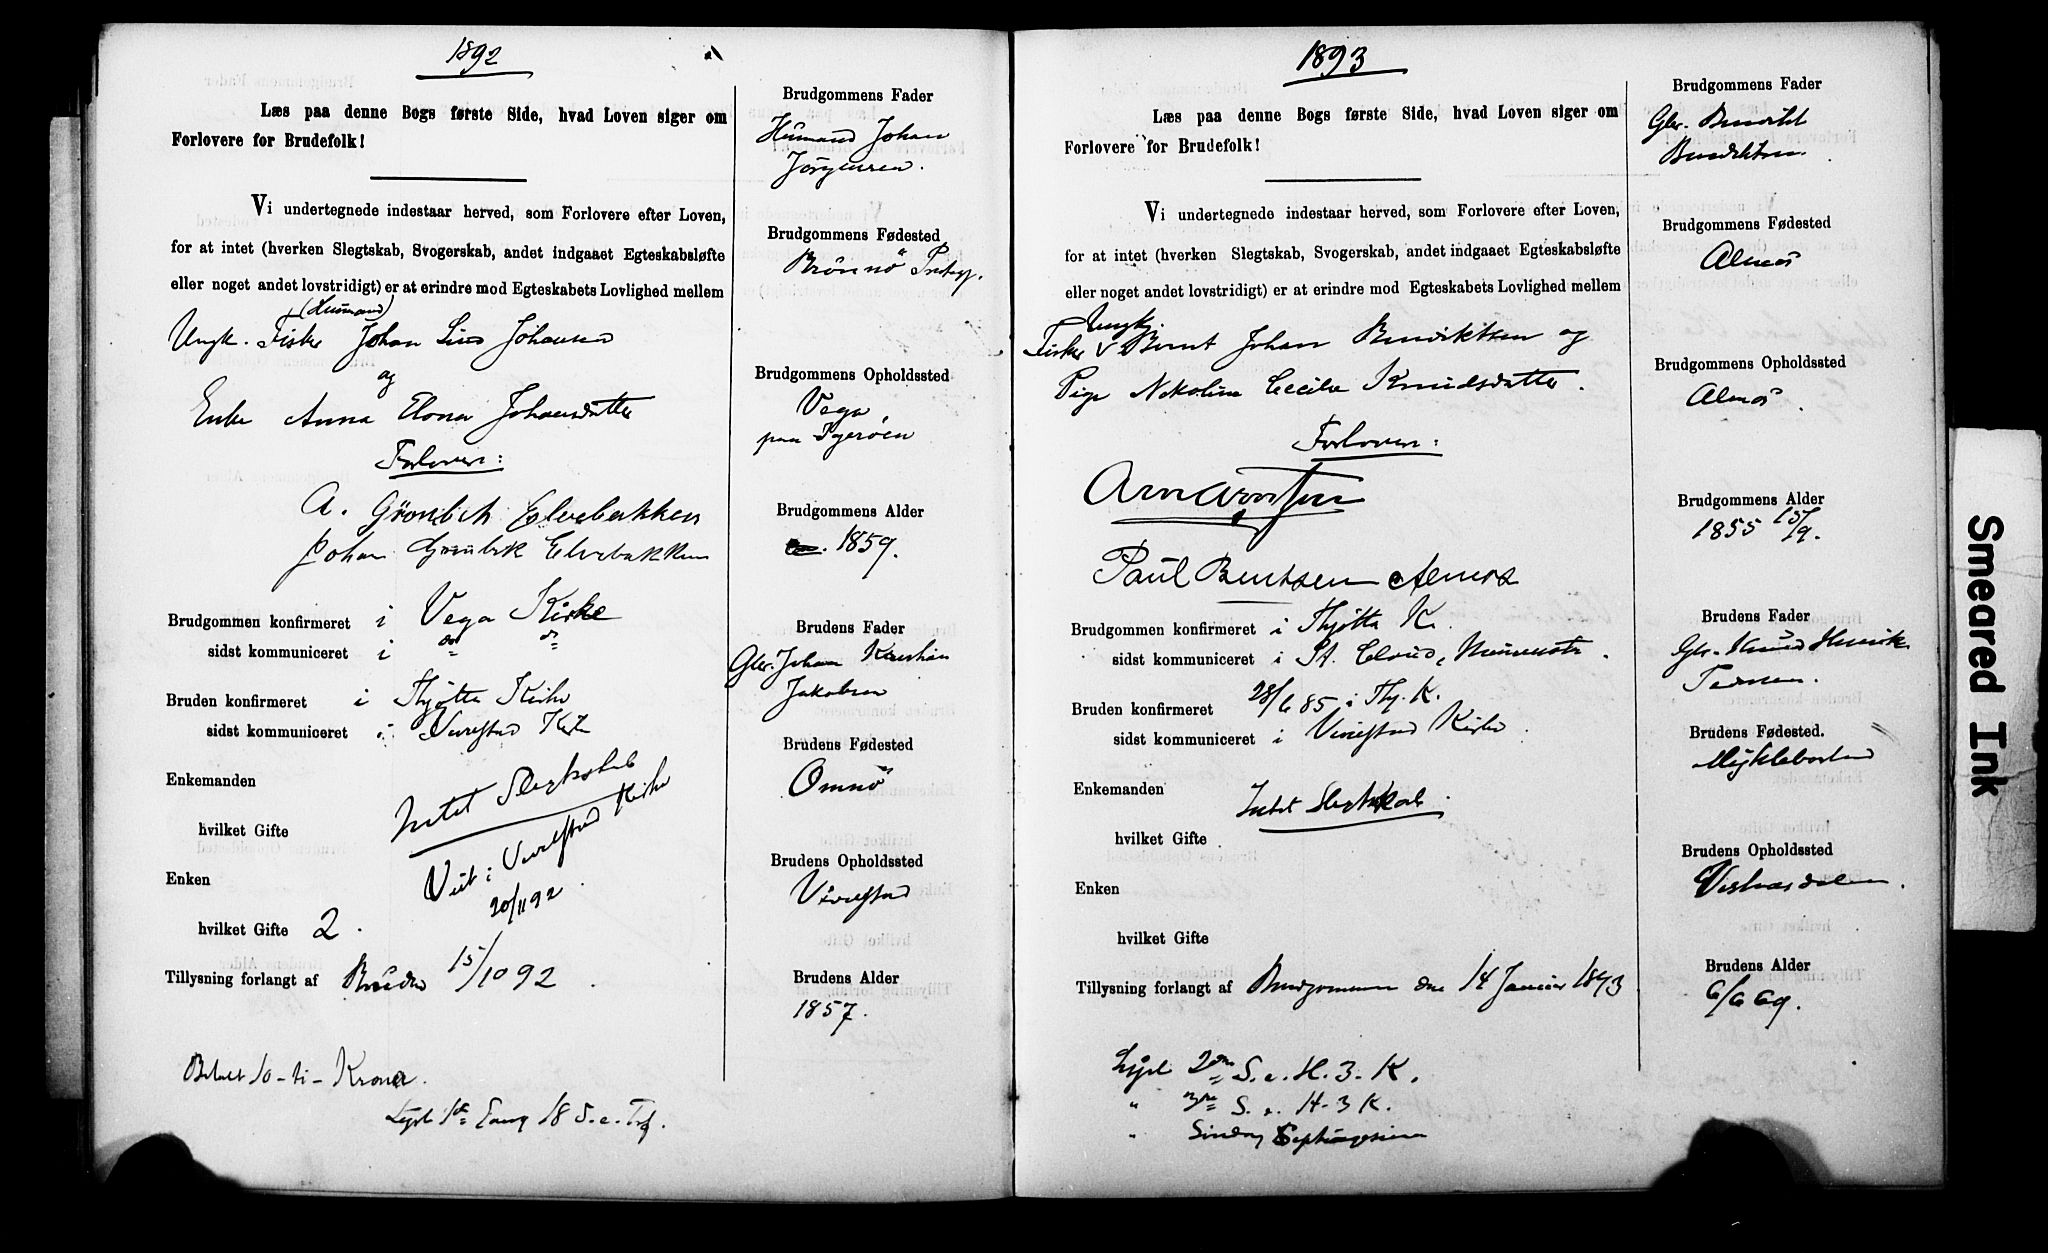 1892
Læs paa denne Bogs første Side, hvad Loven siger om
Forlovere for Brudefolk!
Vi undertegnede indestaar herved, som Forlovere efter Loven,
for at intet (hverken Slegtskab, Svogerskab, andet indgaaet Egteskabsløfte
eller noget andet lovstridigt) er at erindre mod Egteskabets Lovlighed mellem
(Husmand)
Ungk. Fisker Johan Johansen
og
Enke Anna Elona Johansdatter
Forlovere:
A. Grönbek Elvebakken
Johan Grönbek Elvebakken
Brudgommen konfirmeret i Vega Kirke
sidst kommuniceret i do do
Bruden konfirmeret i Thjøtta Kirke
sidst kommuniceret i Vivelstad Kirke
Enkemanden
hvilket Gifte
Intet Slegtskab
Viet i Vivelstad Kirke
20/11 92
Enken
hvilket Gifte 2.
Tillysning forlangt af Bruden 15/10 92.
Betalt 10 - ti - Kroner.
Lyst 1ste Gang 18 S. e. Tref.
Brudgommens Fader
Husmand Johan
Jörgensen.
Brudgommens Fødested
Brönnö Prstgj.
Brudgommens Opholdssted
Vega,
paa Ygeröen
Brudgommens Alder
1859.
Brudens Fader
Gbr. Johan Kristian
Jakobsen
Brudens Fødested
Omnö
Brudens Opholdssted
Vivelstad
Brudens Alder
1857.
1893
Læs paa denne Bogs første Side, hvad Loven siger om
Forlovere for Brudefolk!
Vi undertegnede indestaar herved, som Forlovere efter Loven,
for at intet (hverken Slegtskab, Svogerskab, andet indgaaet Egteskabsløfte
eller noget andet lovstridigt) er at erindre mod Egteskabets Lovlighed mellem
Ungkj.
Fisker Bernt Johan Benediktsen og
Pige Nekoline Cecilie Knudsdatter.
Forlovere:
Arn Arntsen
Paul Bentsen Almos
Brudgommen konfirmeret i Thjötta K.
sidst kommuniceret i St. Cloud, Minnesota.
Bruden konfirmeret 28/6 85 i Thj. K.
sidst kommuniceret i Vivelstad Kirke.
Enkemanden
hvilket Gifte
Intet Slegtskab.
Enken
hvilket Gifte
Tillysning forlangt af Brudgommen den 14 Januar 1893
Lyst 2den S. e. H. 3. K.
" 3die S. e. H. 3 K.
" Søndag Septuagesima
Brudgommens Fader
Gbr. Benedikt
Benediktsen.
Brudgommens Fødested
Almos
Brudgommens Opholdssted
Almos.
Brudgommens Alder
1855 15/9.
Brudens Fader
Gbr. Knud Henrik
Brudens Fødested.
Myklebostad
Brudens Opholdssted
Vistnesdalen.
Brudens Alder
6/6 69.
Smeared Ink